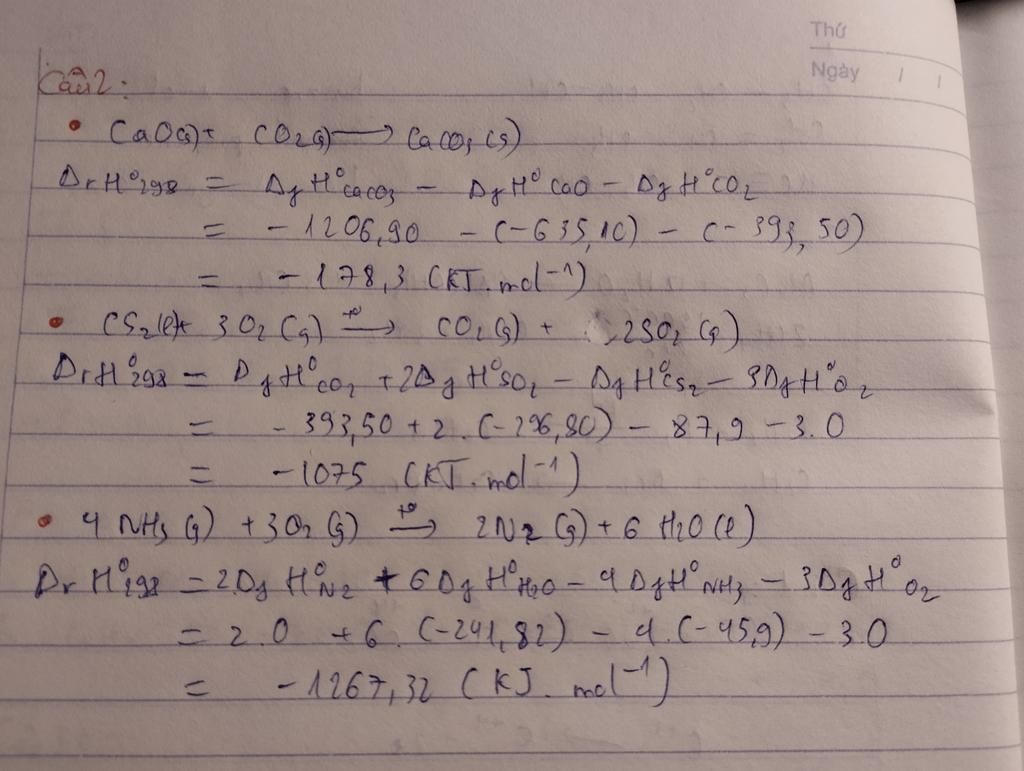 Thứ
Ngày / /
Câu 2:
• CaO(s) + CO2(g) ⟶ CaCO3(s)
ΔrH°298 = ΔfH°CaCO3 - ΔfH°CaO - ΔfH°CO2
= -1206,90 - (-635,10) - (-393,50)
= -178,3 (KJ.mol-1)
• CS2(l) + 3O2(g) t°⟶ CO2(g) + 2SO2(g)
ΔrH°298 = ΔfH°CO2 + 2ΔfH°SO2 - ΔfH°CS2 - 3ΔfH°O2
= -393,50 + 2.(-296,80) - 87,9 - 3.0
= -1075 (KJ.mol-1)
• 4NH3(g) + 3O2(g) t°⟶ 2N2(g) + 6H2O(l)
ΔrH°298 = 2.ΔfH°N2 + 6ΔfH°H2O - 4ΔfH°NH3 - 3ΔfH°O2
= 2.0 + 6.(-241,82) - 4.(-45,9) - 3.0
= -1267,32 (KJ.mol-1)